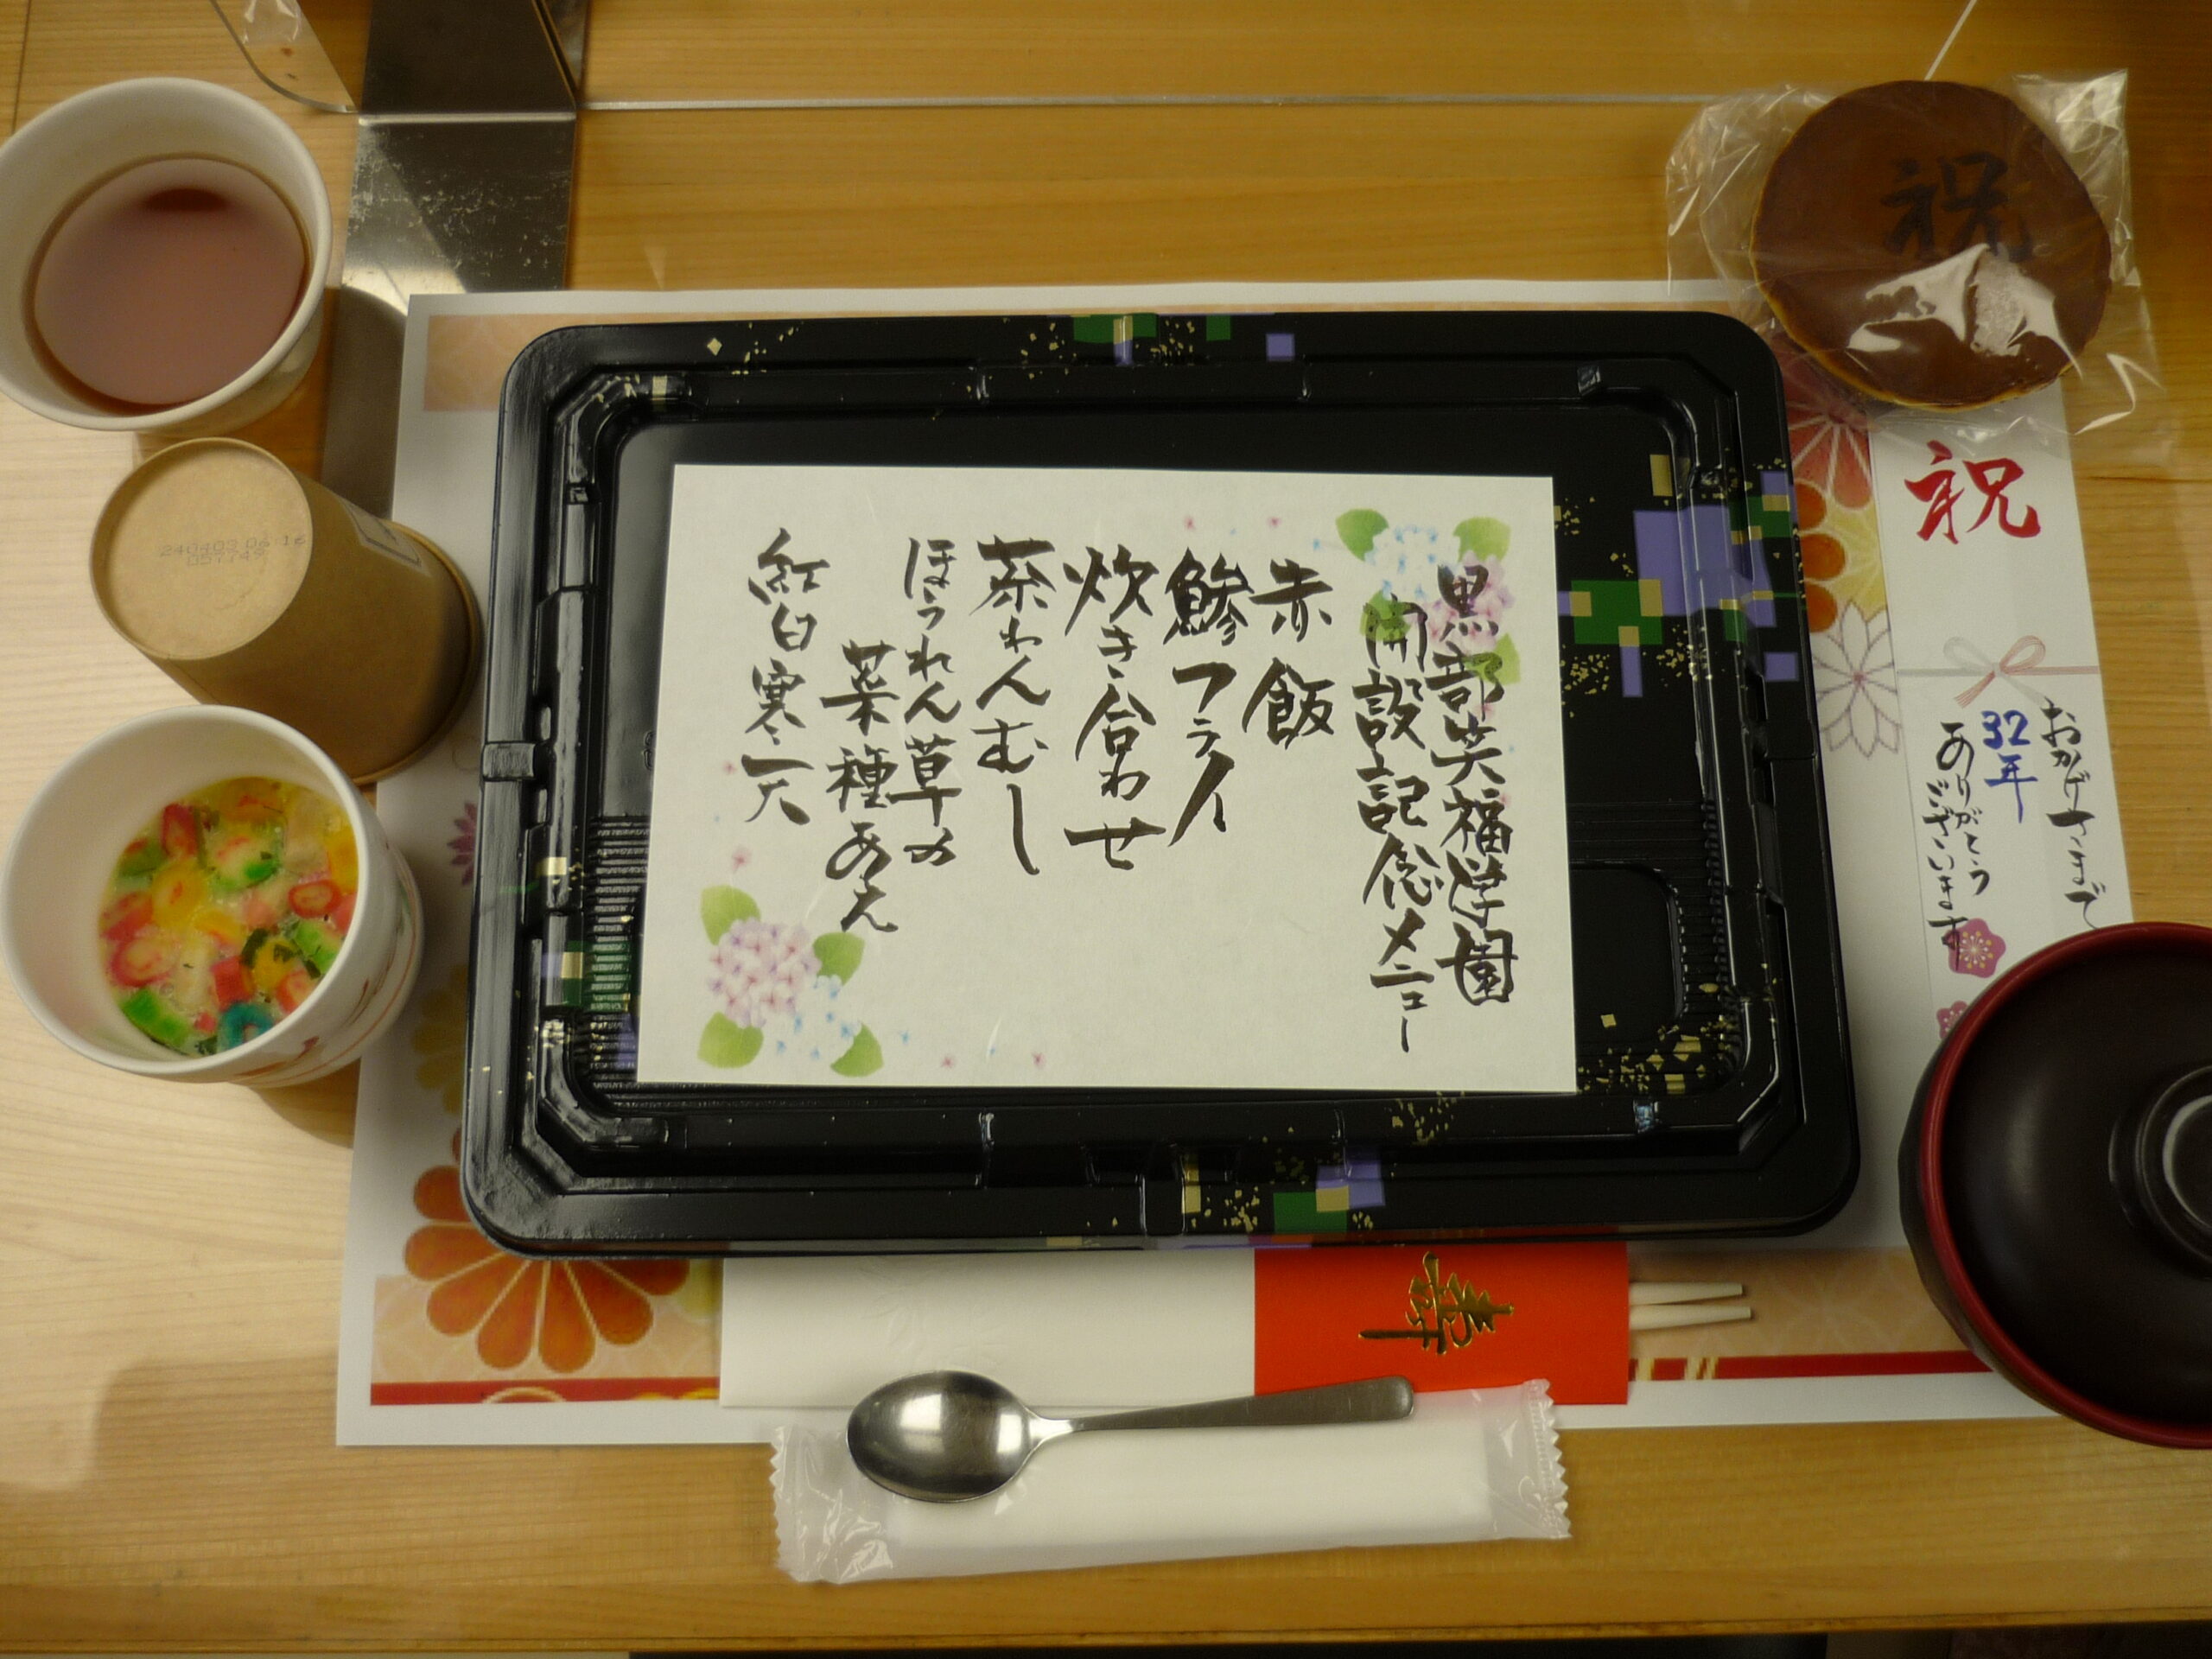 黒部笑福学園
開設記念メニュー
赤飯
鯵フライ
炊き合わせ
茶わんむし
ほうれん草の
菜種あえ
紅白寒天
祝
祝
おかげさまで
32年
ありがとう
ございます
寿
240403 06:16